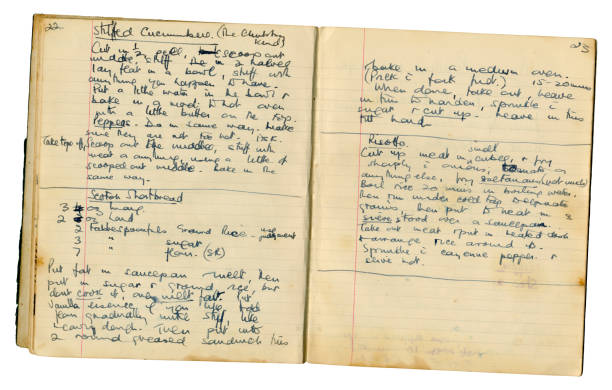 22
Stuffed Cucumbers (The Chutney kind)
Cut in ½ peel, scoop out
middle, stuff, tie in 2 halves
lay flat in a bowl, stuff with
anything you happen to have.
Put a little water in the bowl &
bake in a mod: hot oven
with a little butter on the top.
Peppers. Do in same way. Make
sure they are not too hot.
Take top off, scoop out the middle, stuff with
meat or anything, using a little of
scooped out middle. Bake in the
same way.
Scotch Shortbread
3 oz Marg
2 oz Lard
2 Tablespoonfuls Ground Rice - use judgment
3 " sugar
7 " flour. (SR)
Put fat in saucepan & melt, then
put in sugar & ground rice, but
dont cook it, only melt fat. Put
vanilla essence if you like. Add
flour gradually, until stiff, like
dough. Then put into
2 round greased sandwich tins
23
& bake in a medium oven.
(Prick & fork first.) 15-20 mins
When done, take out, leave
in tin to harden, sprinkle &
sugar & cut up. Leave in tins
till hard
Risotto.
Cut up meat in small cubes, & fry
chopped onions, tomato or
anything else, fry (not until)
Boil rice 20 mins in boiling water,
then run under cold tap to separate
grains, then put to heat in a
sieve, stood over a saucepan.
Take out meat & put in heated dish
& arrange rice around it.
Sprinkle & cayenne pepper &
serve hot.